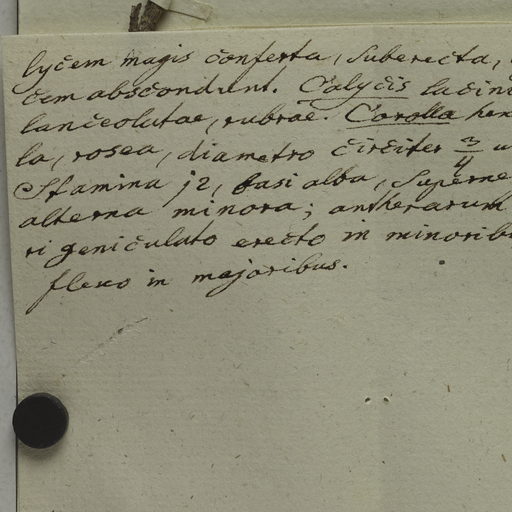 lycem magis conferta, suberecta,
cem abscondunt. Calycis lacini
lanceolatae, rubrae. Corolla hex
la, rosea, diametro circiter 3/4 u
Stamina 12, basi alba, superne
alterna minora; antherarum
ri geniculato erecto in minoribu
flexo in majoribus.